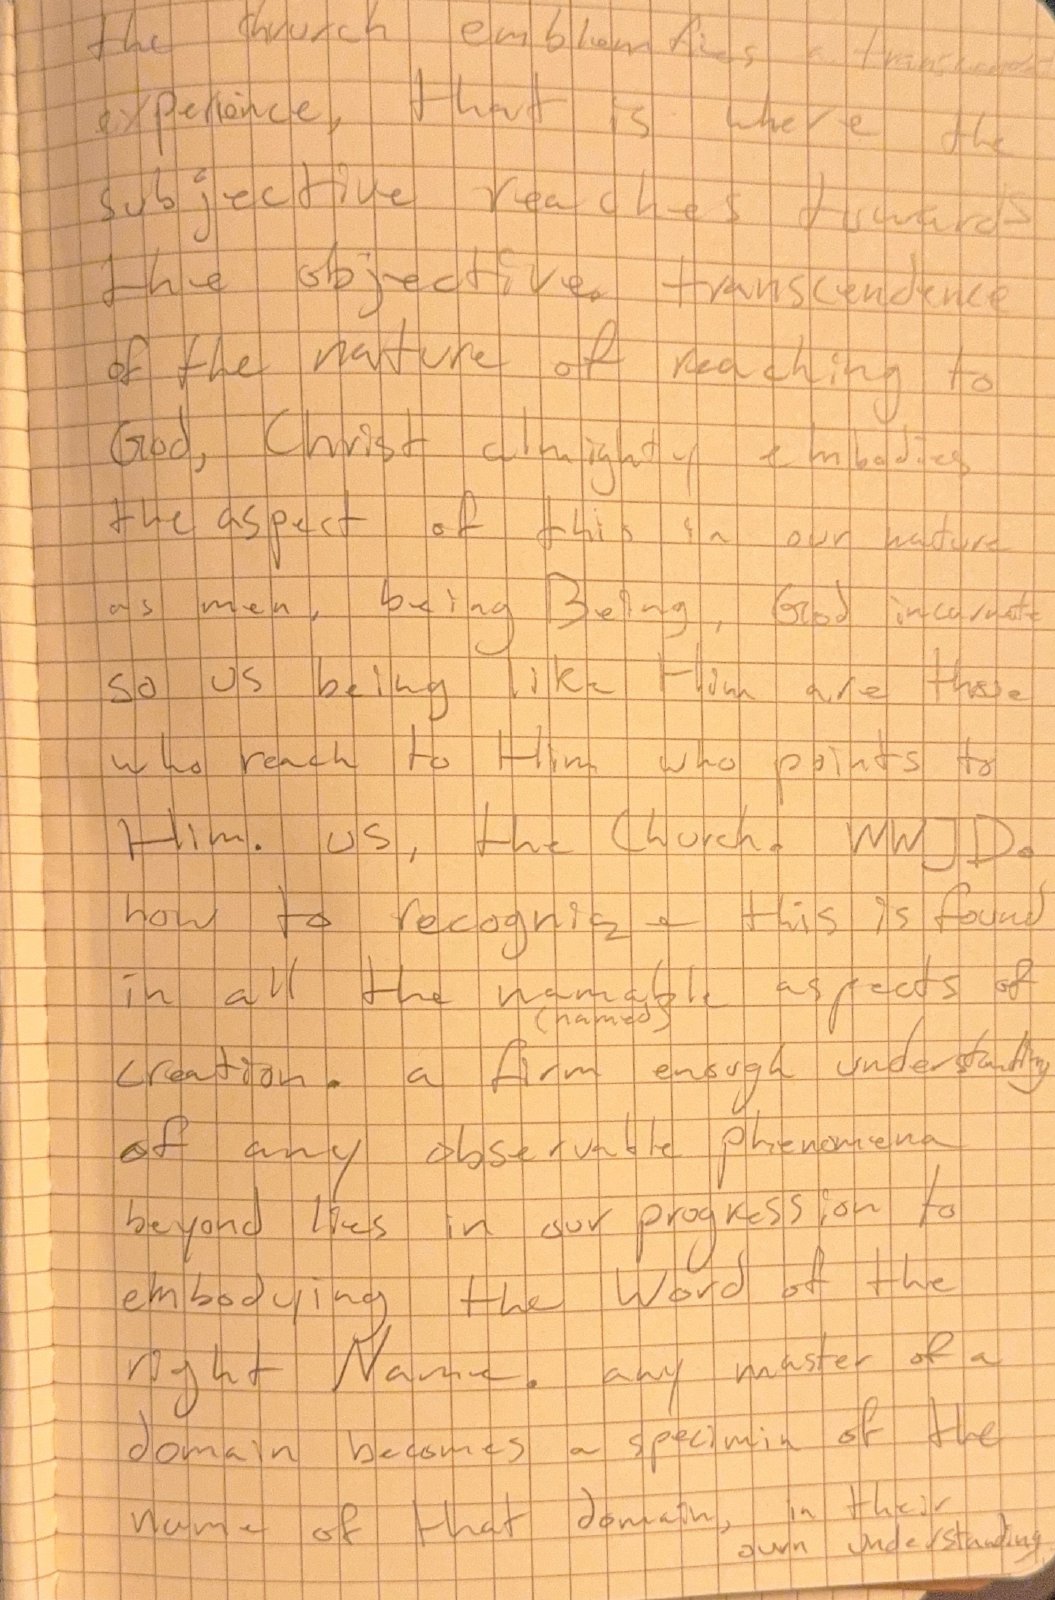 the church emblemifies a transcendent
experience, that is where the
subjective reaches towards
the objective. transcendence
of the nature of reaching to
God, Christ almighty embodies
the aspect of this in our nature
as men, being Being, God incarnate
so us being like Him are those
who reach to Him who points to
Him. us, the Church. WWJD.
how to recognize this is found
in all the namable aspects of
(named)
creation. a firm enough understanding
of any observable phenomena
beyond lies in our progression to
embodying the Word of the
right Name. any master of a
domain becomes a specimin of the
name of that domain, in their
own understanding